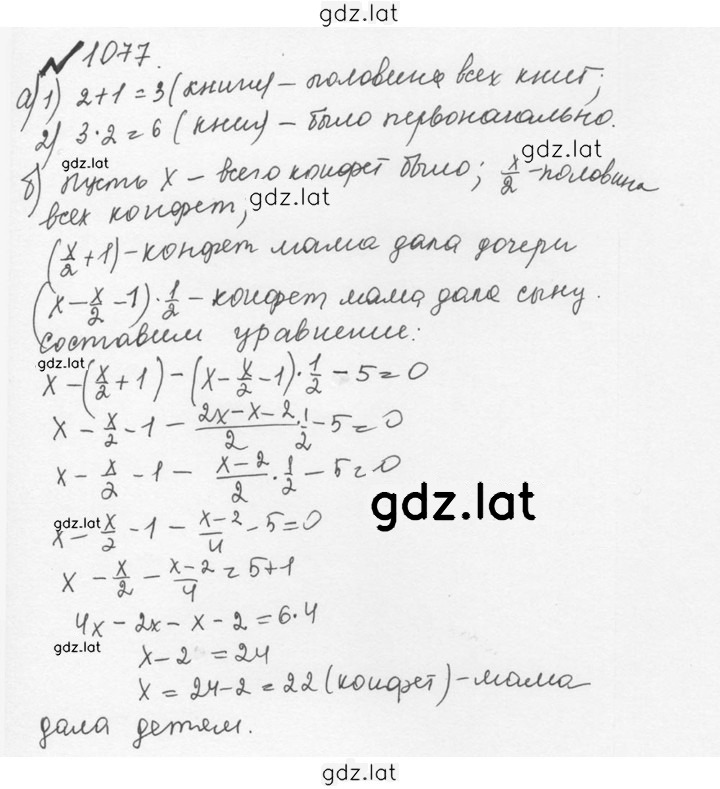 gdz.lat
1077.
а) 1) 2+1=3 (книги) – половина всех книг;
2) 3·2=6 (книг) – было первоначально.
gdz.lat
gdz.lat
б) Пусть x – всего конфет было; x/2 – половина
всех конфет;
gdz.lat
(x/2+1) – конфет мама дала дочери
(x – x/2 – 1)·1/2 – конфет мама дала сыну.
Составим уравнение:
gdz.lat
x – (x/2+1) – (x – x/2 – 1)·1/2 – 5=0
x – x/2 – 1 – (2x–x–2)/2·1/2 – 5=0
x – x/2 – 1 – (x–2)/2·1/2 – 5=0
gdz.lat
gdz.lat
x – x/2 – 1 – (x–2)/4 – 5=0
x – x/2 – (x–2)/4 = 5+1
4x – 2x – x – 2 = 6·4
gdz.lat
x – 2 = 24
x = 24–2 = 22 (конфет) – мама
дала детям.
gdz.lat